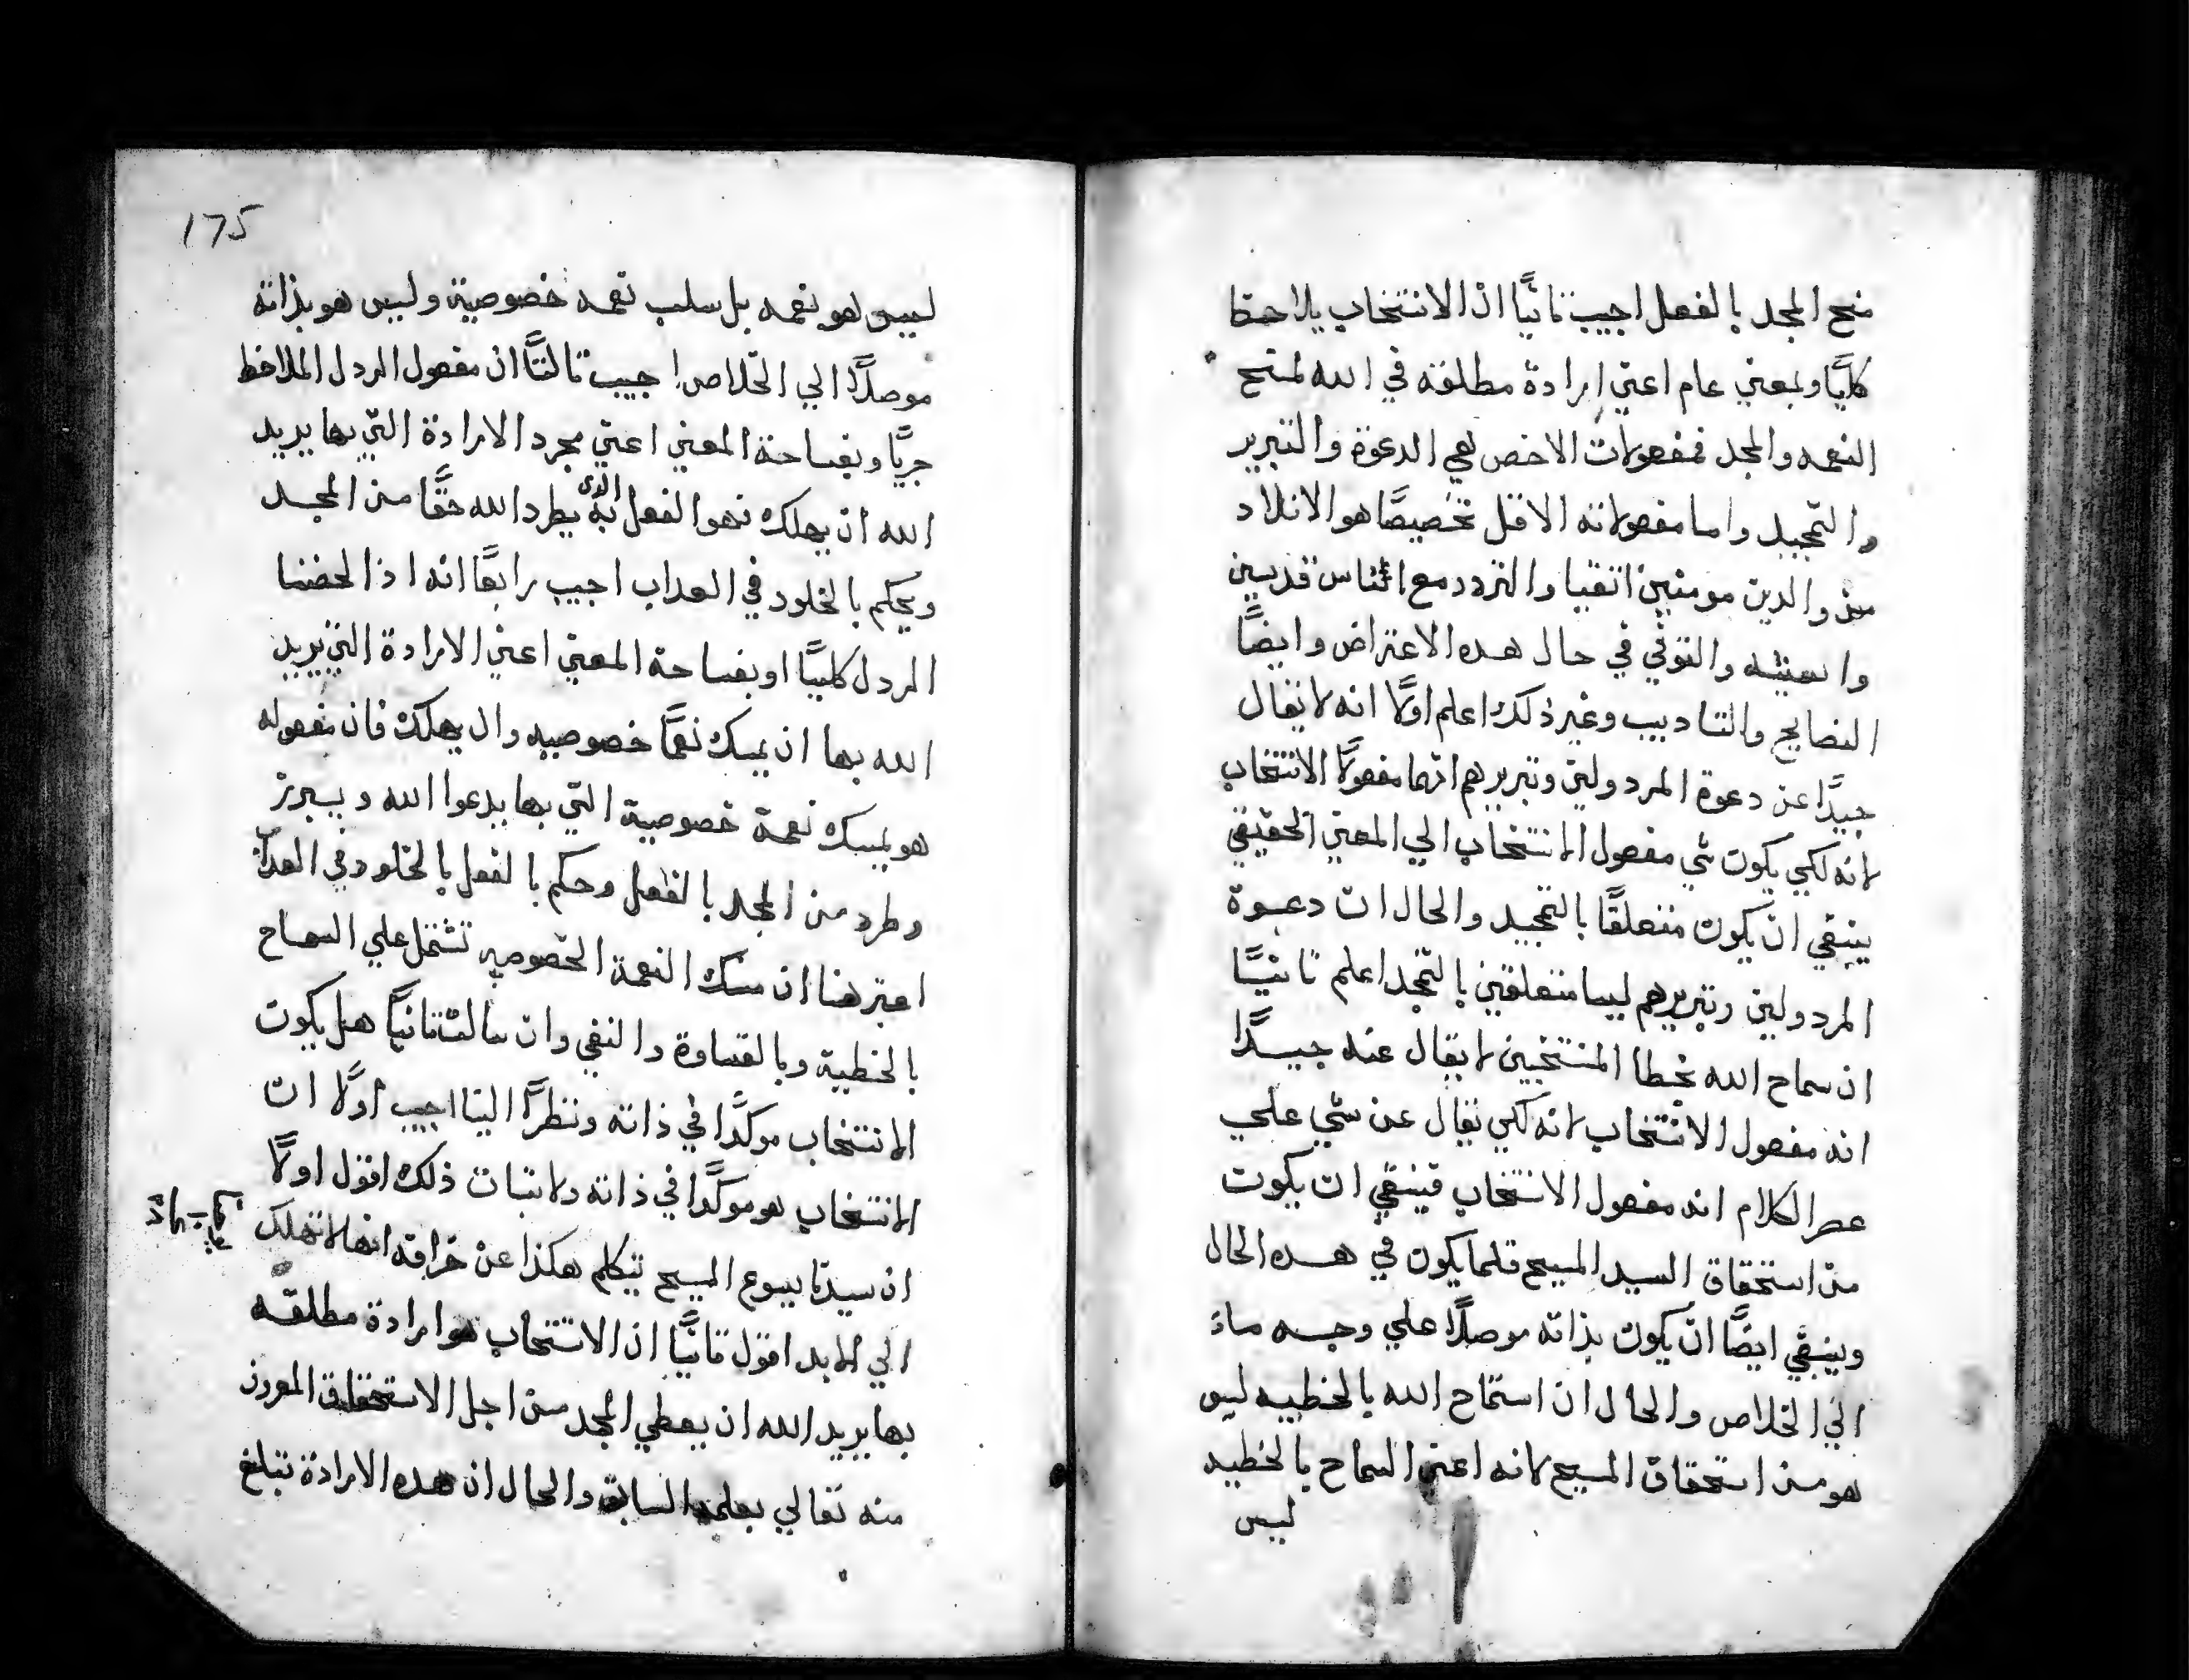 منح المجد بالفعل اجيب تانيًا ان الانتخاب يلاحظ
كليًا وبمعني عام اعني ارادة مطلقة في الله لمنح
النعمه والمجد فمفعولات الاخص هي الدعوة والتبرير
والتمجيد واما مفعولاته الاقل تخصيصًا هو الانلاد
من والدين مومنين اتقيا والتردد مع اناس قديسين
والتوفي في حال هده الاعتراض وايضًا
النصايح والتاديب وغير ذلك اعلم اولًا انه لا يقال
جيدًا عن دعوة المردولين وتبريرهم انهما مفعولا الانتخاب
لانه لكي يكون شي مفعول الانتخاب الي المعني الحقيقي
ينبغي ان يكون متعلقًا بالتمجيد والحال ان دعوة
المردولين وتبريرهم ليسا متعلقين بالتمجد اعلم تانيًا
ان سماح الله بخطا المنتخبين لا يقال عنه جيدًا
انه مفعول الانتخاب لانه لكي يقال عن شي علي
عصر الكلام انه مفعول الانتخاب فينبغي ان يكون
من استحقاق السيد المسيح قلما يكون في هده الحال
وينبغي ايضًا ان يكون بذاته موصلًا علي وجه ماء
الي الخلاص والحال ان استماح الله بالخطيه ليس
هو من استحقاق المسيح لانه اعني السماح بالخطيه
ليس
175
ليس هو نعمه بل سلب نعمه خصوصية وليس هو بذاته
موصلًا الي الخلاص اجيب تالتًا ان مفعول الردل الملاحظ
جزيًا وبفساحة المعني اعني مجرد الارادة التي بها يريد
الله ان يهلك فهو الفعل الدي به يطرد الله حقًا من المجد
ويحكم بالخلود في العداب اجيب رابعًا انه اذا لحضنا
الردل كليًا او بفساحة المعني اعني الارادة التي يريد
الله بها ان يمسك نعمًا خصوصيه وان يهلك فان مفعوله
هو يمسك نعمة خصوصية التي بها يدعوا الله ويبرر
وطرد من المجد بالفعل وحكم بالفعل بالخلود في العداب
اعتبر هنا ان مسك النعمة الخصوصيه تشتمل علي السماح
بالخطية وبالقساوة والنفي وان سالت تانيًا هل يكون
الانتخاب موكدًا في ذاته ونظرًا الينا اجيب اولًا ان
الانتخاب هو موكدًا في ذاته ولاتبات ذلك اقول اولًا
ان سيدنا يسوع المسيح تيكلم هكذا عن خرافه انها لا تهلك
الي الابد اقول تانيًا ان الانتخاب هو ارادة مطلقه
بها يريد الله ان يعطي المجد من اجل الاستحقاق المعروف
منه تعالي بعلمه السابق والحال ان هده الارادة تبلغ